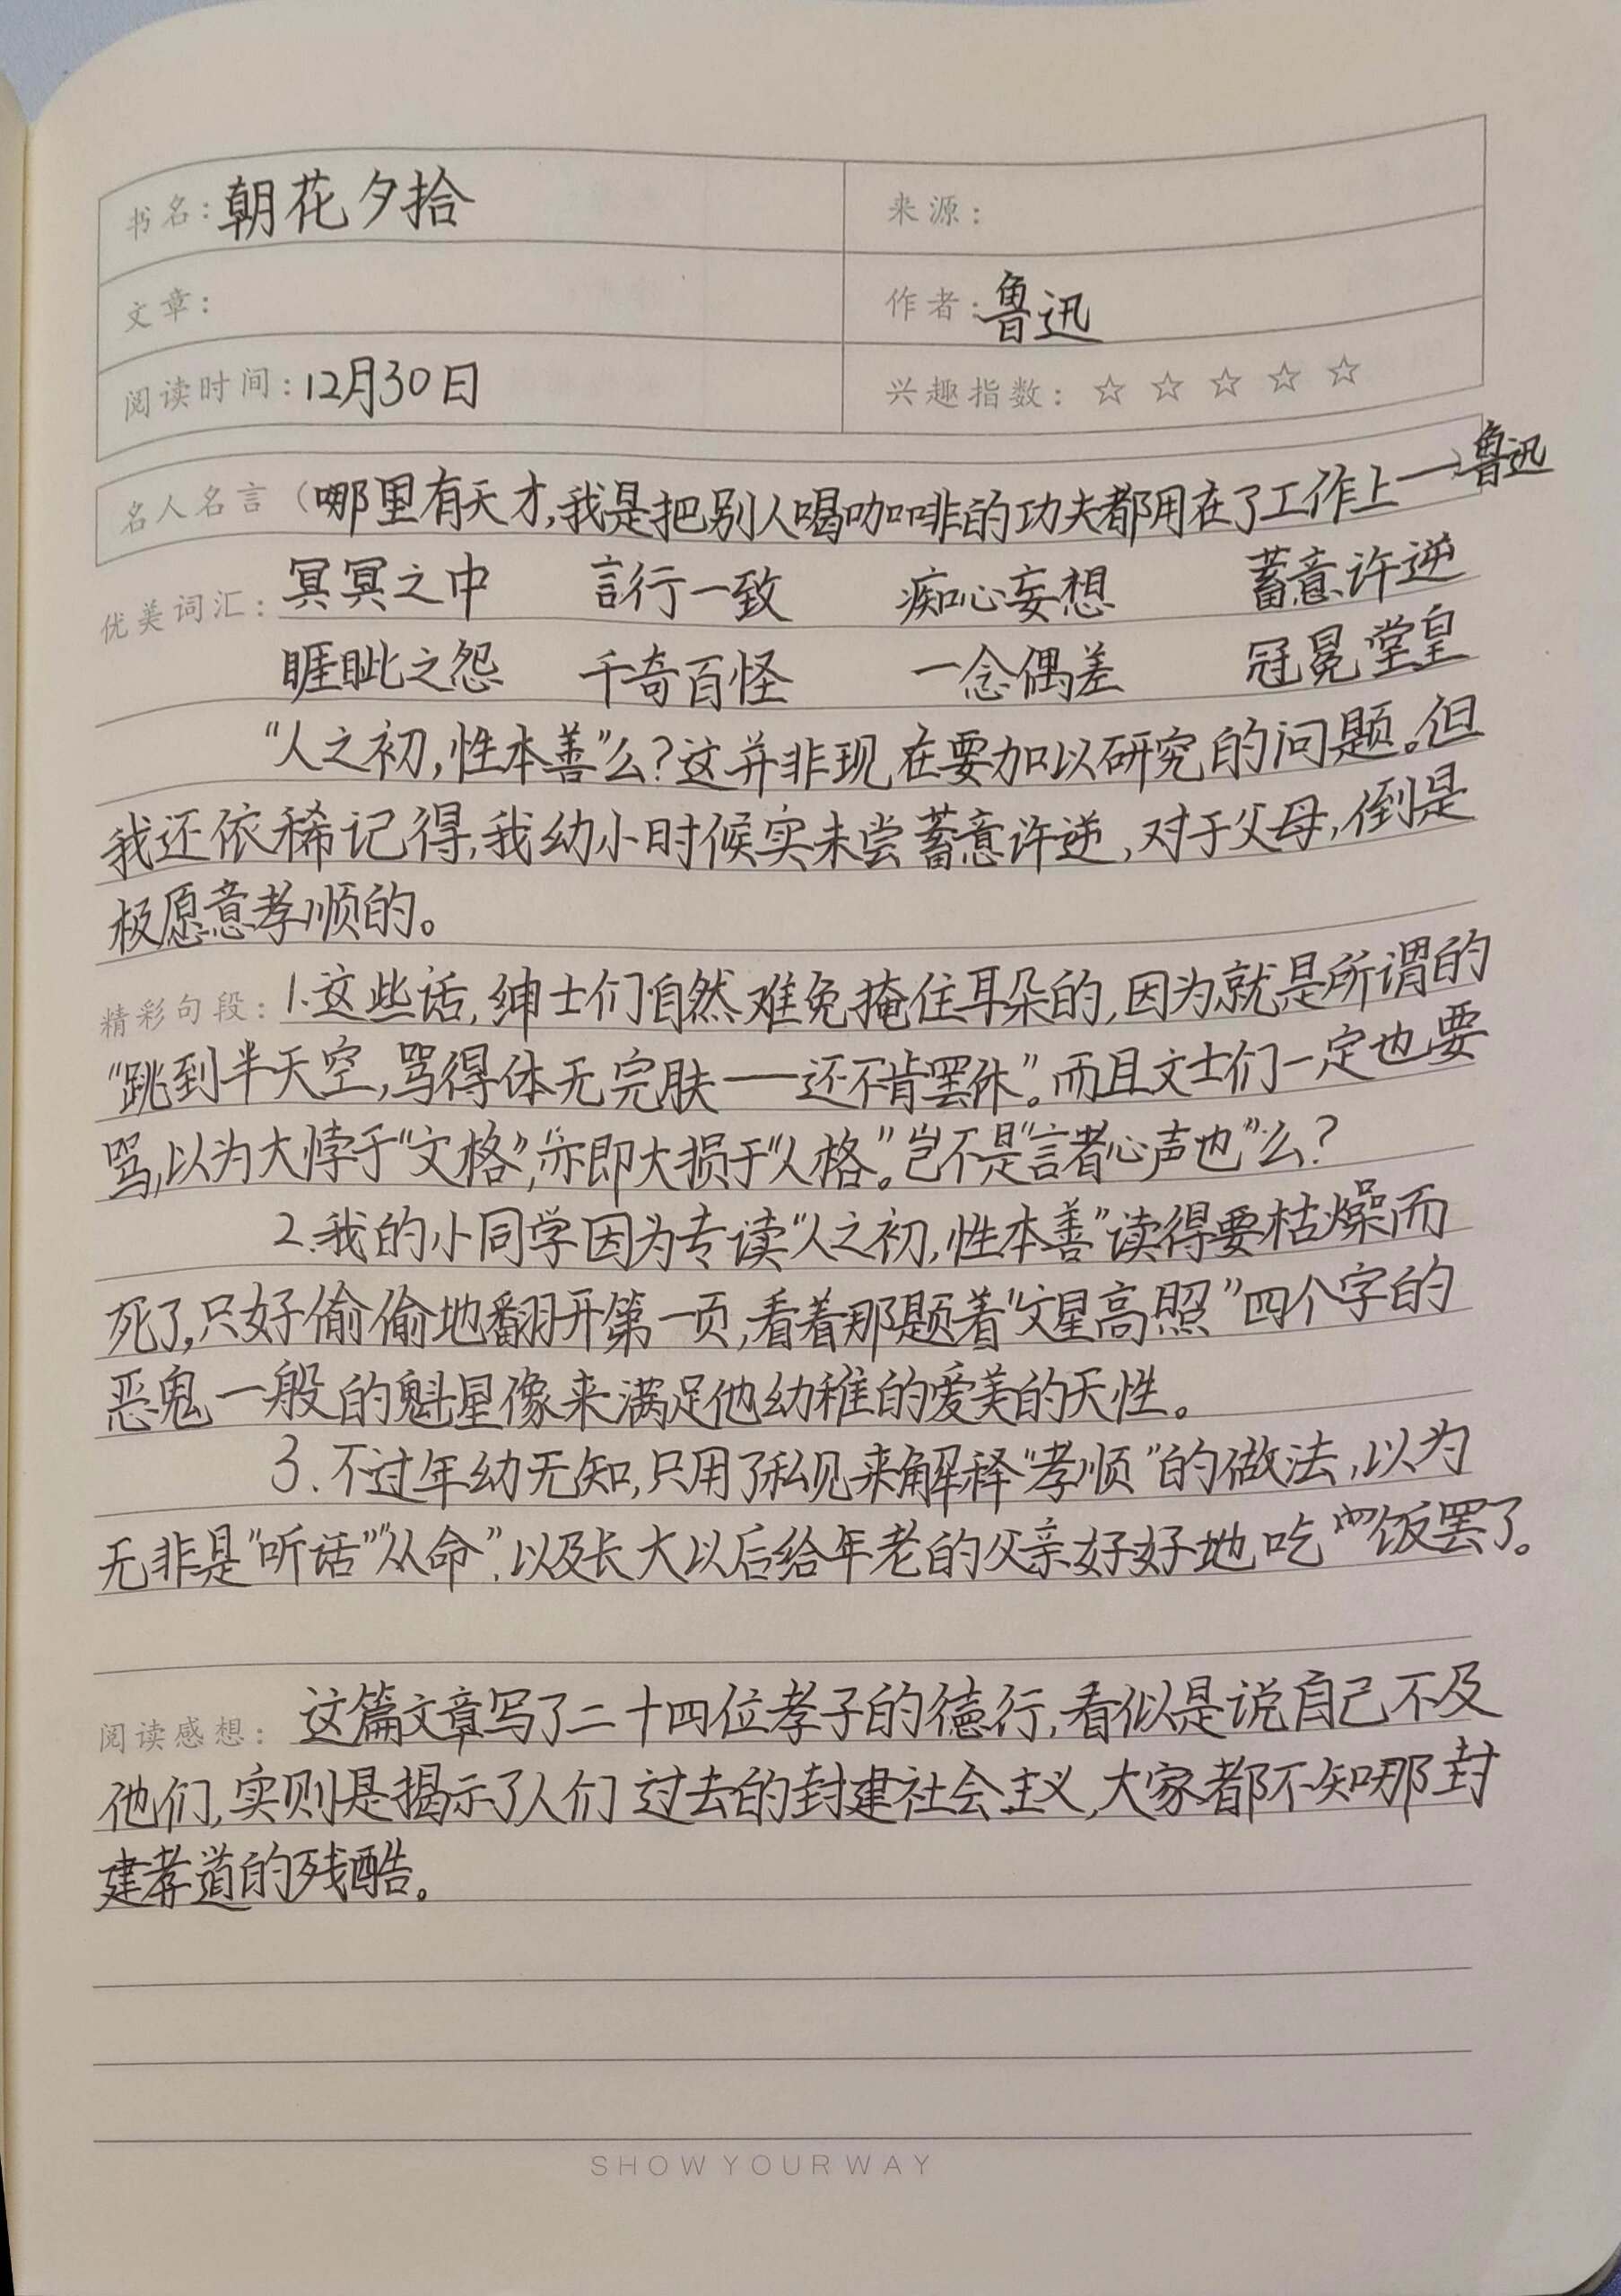 书名：朝花夕拾
来源：
文章：
作者：鲁迅
阅读时间：12月30日
兴趣指数：☆ ☆ ☆ ☆ ☆
名人名言（哪里有天才，我是把别人喝咖啡的功夫都用在了工作上——鲁迅
优美词汇：冥冥之中 言行一致 痴心妄想 蓄意许逆
睚眦之怨 千奇百怪 一念偶差 冠冕堂皇
“人之初，性本善”么？这并非现在要加以研究的问题。但
我还依稀记得，我幼小时候实未尝蓄意许逆，对于父母，倒是
极愿意孝顺的。
精彩句段：1.这些话，绅士们自然难免掩住耳朵的，因为就是所谓的
“跳到半天空，骂得体无完肤——还不肯罢休”。而且文士们一定也要
骂，以为大悖于“文格”，亦即大损于“人格”。岂不是“言者心声也”么？
2.我的小同学因为专读“人之初，性本善”读得要枯燥而
死了，只好偷偷地翻开第一页，看着那题着“文星高照”四个字的
恶鬼一般的魁星像来满足他幼稚的爱美的天性。
3.不过年幼无知，只用了私见来解释“孝顺”的做法，以为
无非是“听话”“从命”，以及长大以后给年老的父亲好好地吃饭罢了。
阅读感想：这篇文章写了二十四位孝子的德行，看似是说自己不及
他们，实则是揭示了人们过去的封建社会主义，大家都不知那封
建孝道的残酷。
SHOW YOUR WAY